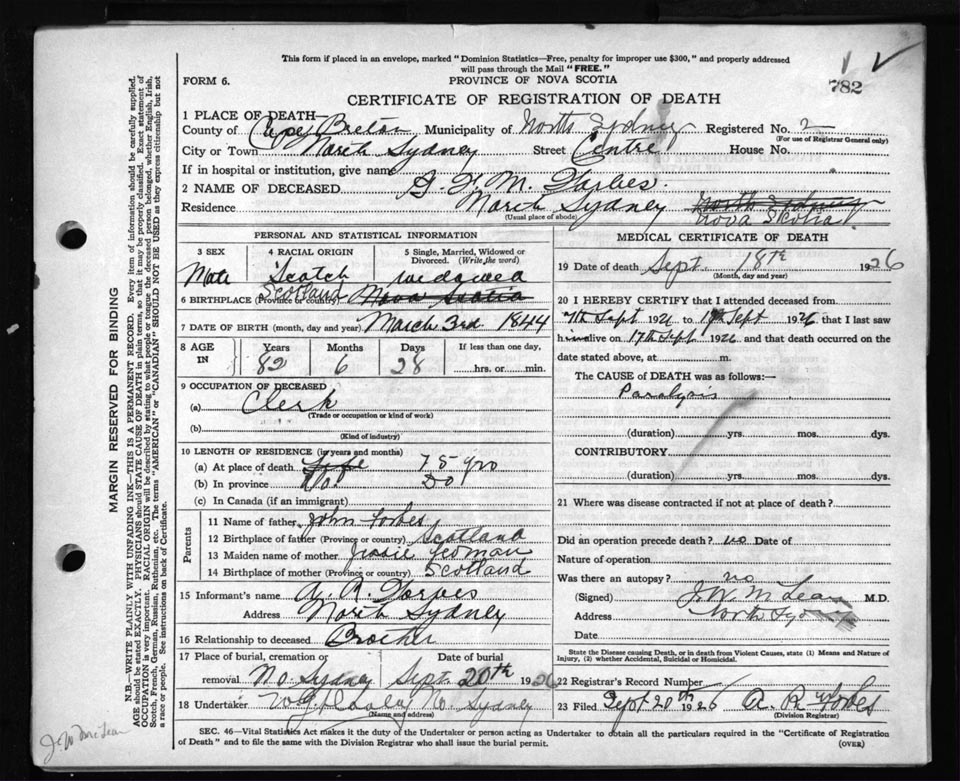 This form if placed in an envelope, marked "Dominion Statistics—Free, penalty for improper use $300," and properly addressed
will pass through the Mail "FREE."
FORM 6.
PROVINCE OF NOVA SCOTIA
782
CERTIFICATE OF REGISTRATION OF DEATH
1 PLACE OF DEATH—
County of Cape Breton Municipality of North Sydney Registered No. 2
(For use of Registrar General only)
City or Town North Sydney Street Centre House No.
If in hospital or institution, give name
2 NAME OF DECEASED M. Forbes.
Residence North Sydney North Sydney
Nova Scotia
(Usual place of abode)
PERSONAL AND STATISTICAL INFORMATION
3 SEX 4 RACIAL ORIGIN 5 Single, Married, Widowed or
Divorced. (Write the word)
Male Scotch widowed
Scotland
6 BIRTHPLACE (Province or country) Nova Scotia
7 DATE OF BIRTH (month, day and year) March 3rd 1844
8 AGE IN Years Months Days If less than one day,
82 6 28 hrs. or min.
9 OCCUPATION OF DECEASED
(a) Clerk
(Trade or occupation or kind of work)
(b)
(Kind of industry)
10 LENGTH OF RESIDENCE (in years and months)
(a) At place of death Life 75 yrs
(b) In province Do Do
(c) In Canada (if an immigrant)
Parents
11 Name of father John Forbes
12 Birthplace of father (Province or country) Scotland
13 Maiden name of mother Jessie Yeoman
14 Birthplace of mother (Province or country) Scotland
15 Informant's name A. R. Forbes
Address North Sydney
16 Relationship to deceased Brother
17 Place of burial, cremation or Date of burial
removal No. Sydney Sept. 20th 1926
18 Undertaker No. Sydney
(Name and address)
MEDICAL CERTIFICATE OF DEATH
19 Date of death Sept. 18th 1926
(Month, day and year)
20 I HEREBY CERTIFY that I attended deceased from
7th Sept 1926 to 17th Sept 1926 that I last saw
him alive on 17th Sept 1926 and that death occurred on the
date stated above, at m.
The CAUSE OF DEATH was as follows:—
Paralysis
(duration) yrs. mos. dys.
CONTRIBUTORY
(duration) yrs. mos. dys.
21 Where was disease contracted if not at place of death?
Did an operation precede death? no Date of
Nature of operation
Was there an autopsy? no
(Signed) J. W. McLean M.D.
Address North Sydney
Date
State the Disease causing Death, or in death from Violent Causes, state (1) Means and Nature of
Injury, (2) whether Accidental, Suicidal or Homicidal.
22 Registrar's Record Number
23 Filed Sept 20th 1926 A. R. Forbes
(Division Registrar)
SEC. 46—Vital Statistics Act makes it the duty of the Undertaker or person acting as Undertaker to obtain all the particulars required in the "Certificate of Registration
of Death" and to file the same with the Division Registrar who shall issue the burial permit.
(OVER)
MARGIN RESERVED FOR BINDING
N.B.—WRITE PLAINLY WITH UNFADING INK—THIS IS A PERMANENT RECORD. Every item of information should be carefully supplied.
AGE should be stated EXACTLY. PHYSICIANS should STATE CAUSE OF DEATH in plain terms, so that it may be properly classified. Exact statement of
OCCUPATION is very important. RACIAL ORIGIN will be described by stating to what people or tongue the deceased person belonged, whether English, Irish,
Scotch, French, German, Russian, Ruthenian, etc. The terms "AMERICAN" or "CANADIAN" SHOULD NOT BE USED as they express citizenship but not
a race or people. See instructions on back of Certificate.
J. W. McLean